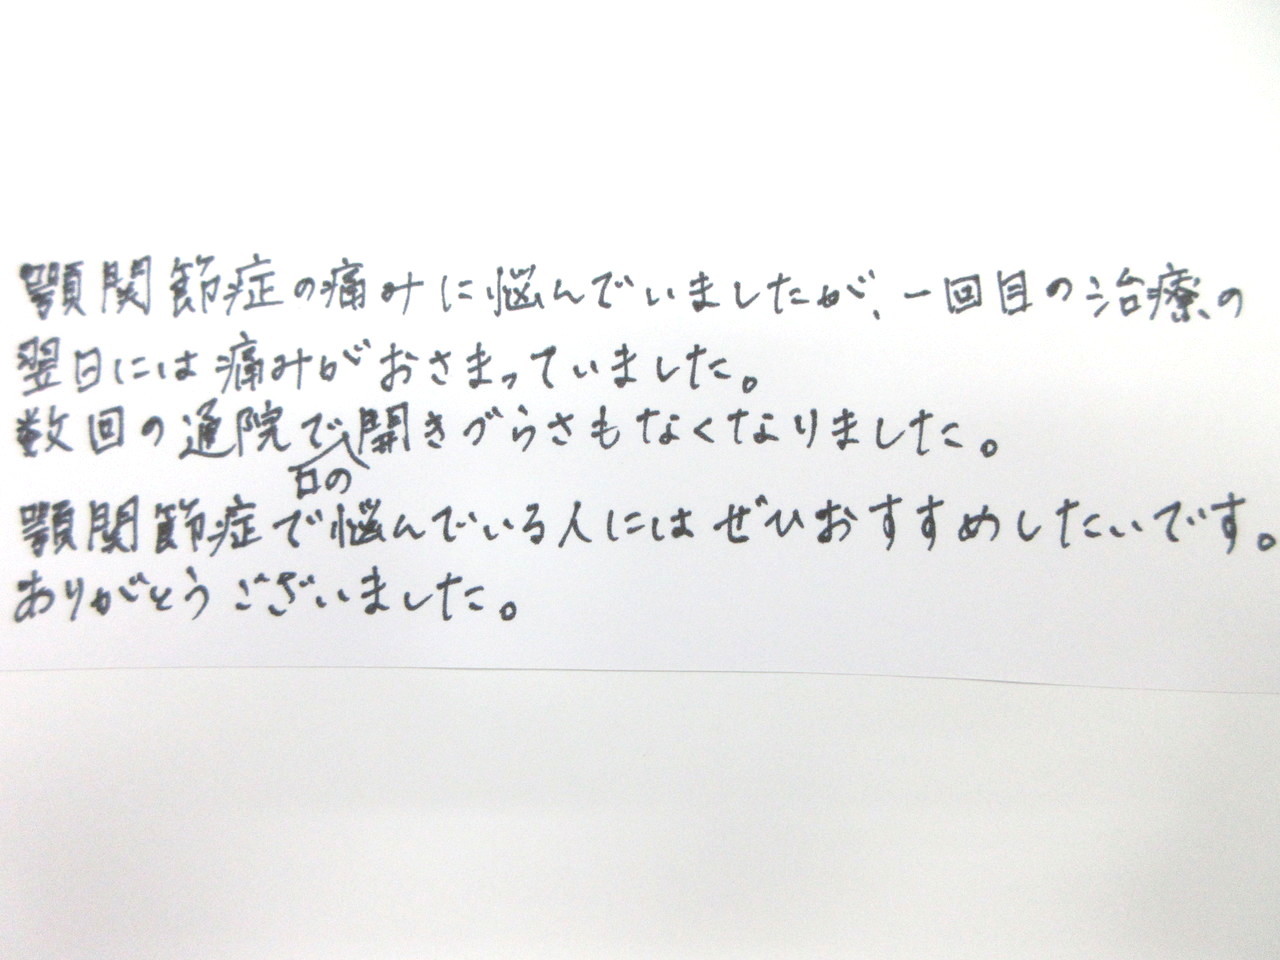 顎関節症の痛みに悩んでいましたが、一回目の治療の
翌日には痛みがおさまっていました。
数回の通院で口の開きづらさもなくなりました。
顎関節症で悩んでいる人にはぜひおすすめしたいです。
ありがとうございました。